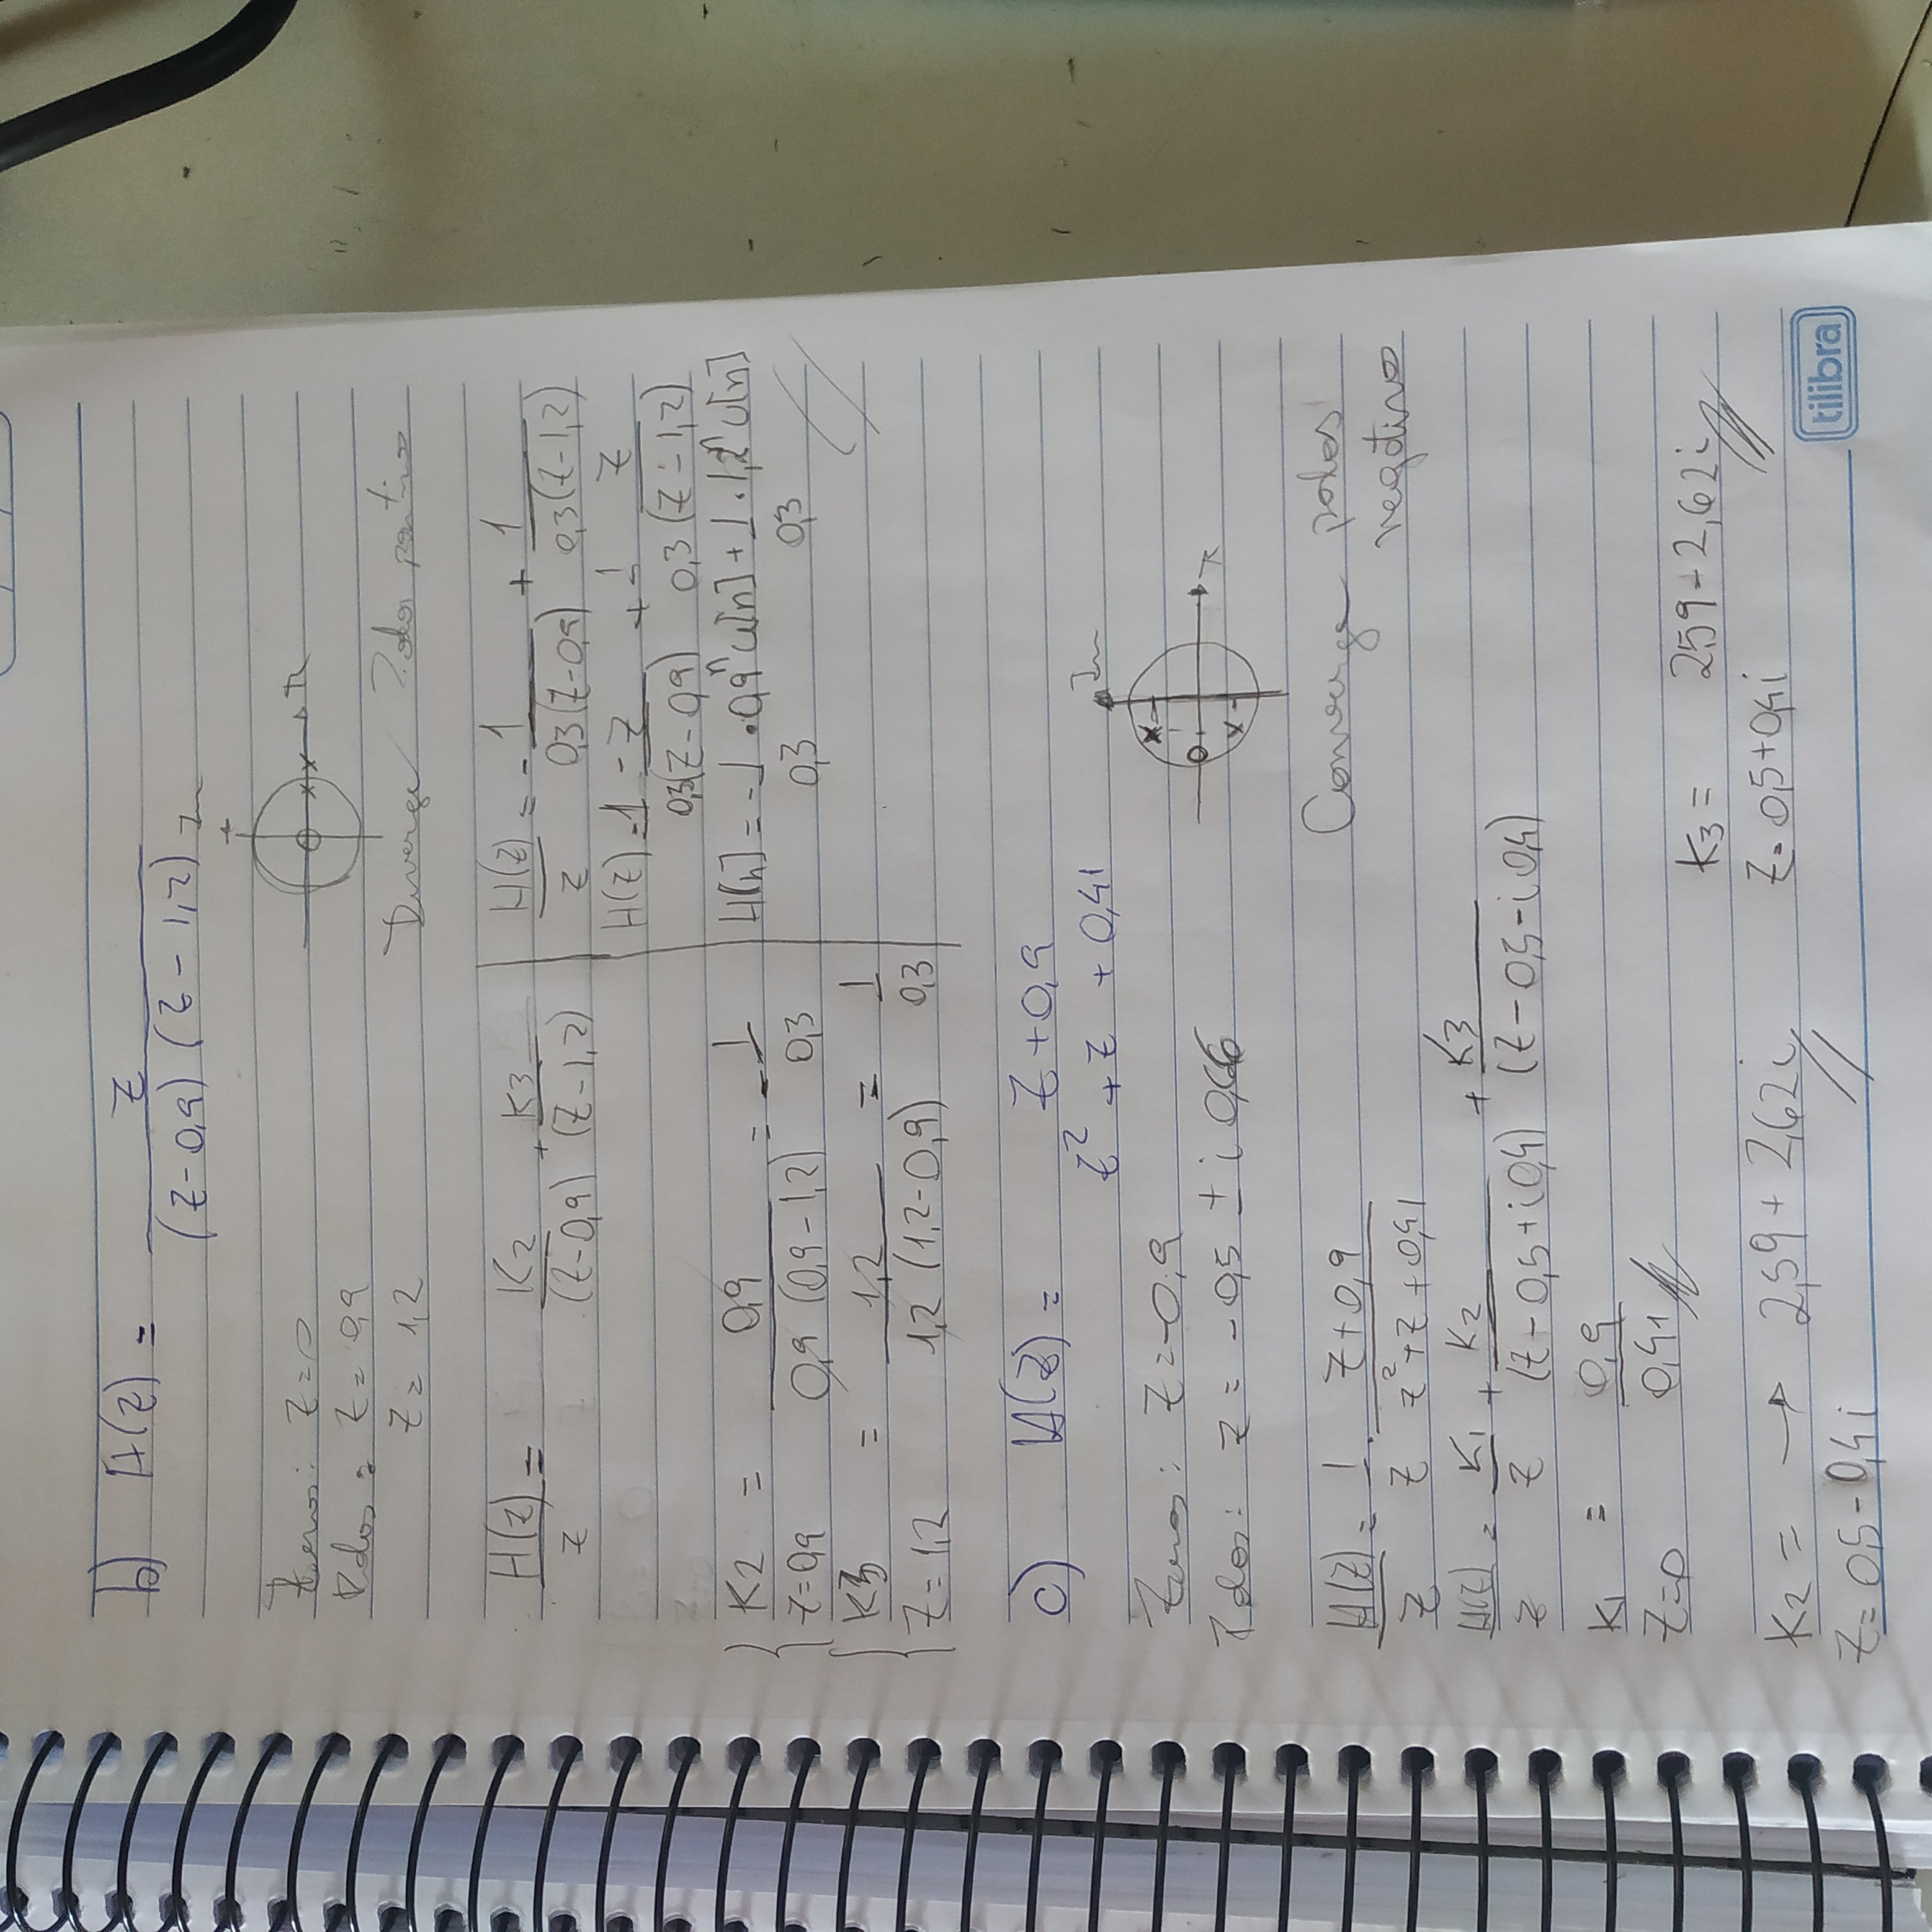 b) H(z) = z / (z-0,9) (z-1,2)
Im
Zeros: z=0
R
Polos: z= 0,9
z= 1,2
Diverge Polos positivos
H(z)/z = K2/(z-0,9) + K3/(z-1,2)
K2 z=0,9 = 0,9 / 0,9 (0,9-1,2) = -1/0,3
K3 z=1,2 = 1,2 / 1,2 (1,2-0,9) = 1/0,3
H(z)/z = -1/0,3(z-0,9) + 1/0,3(z-1,2)
H(z) = -1/0,3 z/(z-0,9) + 1/0,3 z/(z-1,2)
H[n] = -1/0,3 · 0,9^n u[n] + 1/0,3 · 1,2^n u[n]
c) H(z) = z+0,9 / z² + z + 0,41
Im
Zeros: z=-0,9
R
Polos: z = -0,5 ± i 0,66
Converge polos
negativos
H(z)/z = 1/z · z+0,9 / z²+z+0,41
H(z)/z = K1/z + K2/(z-0,5+i0,4) + K3/(z-0,5-i0,4)
K1 z=0 = 0,9/0,41
K3 = 2,59-2,62i
z=0,5+0,4i
K2 = → 2,59+2,62i
z=0,5-0,4i
tilibra